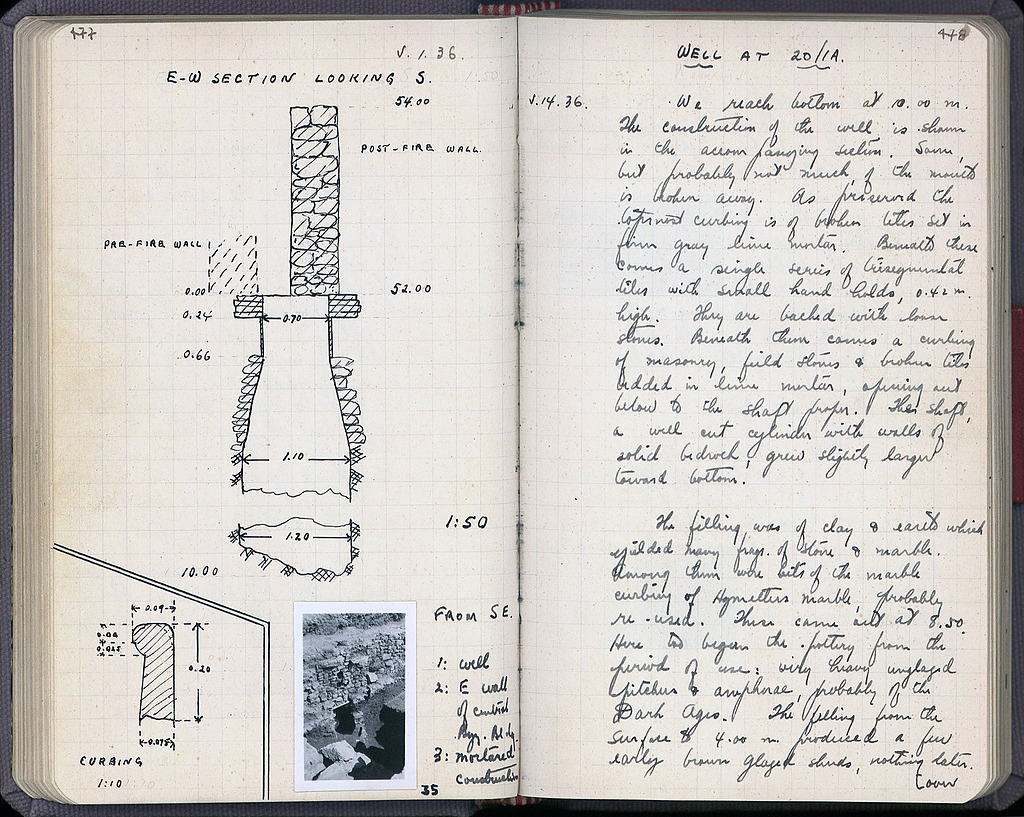 477
V. 1. 36.
E-W SECTION LOOKING S.
54.00
POST-FIRE WALL.
PRE-FIRE WALL
0.00
52.00
0.24
0.70
0.66
1.10
1:50
1.20
10.00
0.09
0.20
0.025
0.075
CURBING
1:10
FROM SE.
1: well
2: E wall
of central
Byz. Bldg.
3: mortared
construction
35
478
WELL AT 20/ΙΑ.
V.14.36.
We reach bottom at 10.00 m.
The construction of the well is shown
in the accompanying section. Some,
but probably not much, of the mouth
is broken away. As preserved the
topmost curbing is of broken tiles set in
firm gray lime mortar. Beneath these
comes a single series of trisegmental
tiles with small hand holds, 0.42 m.
high. They are backed with loose
stones. Beneath them comes a curbing
of masonry, field stones & broken tiles
bedded in lime mortar, opening out
below to the shaft proper. This shaft,
a well cut cylinder with walls of
solid bedrock, grew slightly larger
toward bottom.
The filling was of clay & earth which
yielded many frags. of stone & marble.
Among them were bits of the marble
curbing of Hymettus marble, probably
re-used. These came out at 8.50.
Here too began the pottery from the
period of use: very heavy unglazed
pitchers & amphorae, probably of the
Dark Ages. The filling from the
surface to 4.00 m. produced a few
early brown glazed sherds, nothing later.
(over